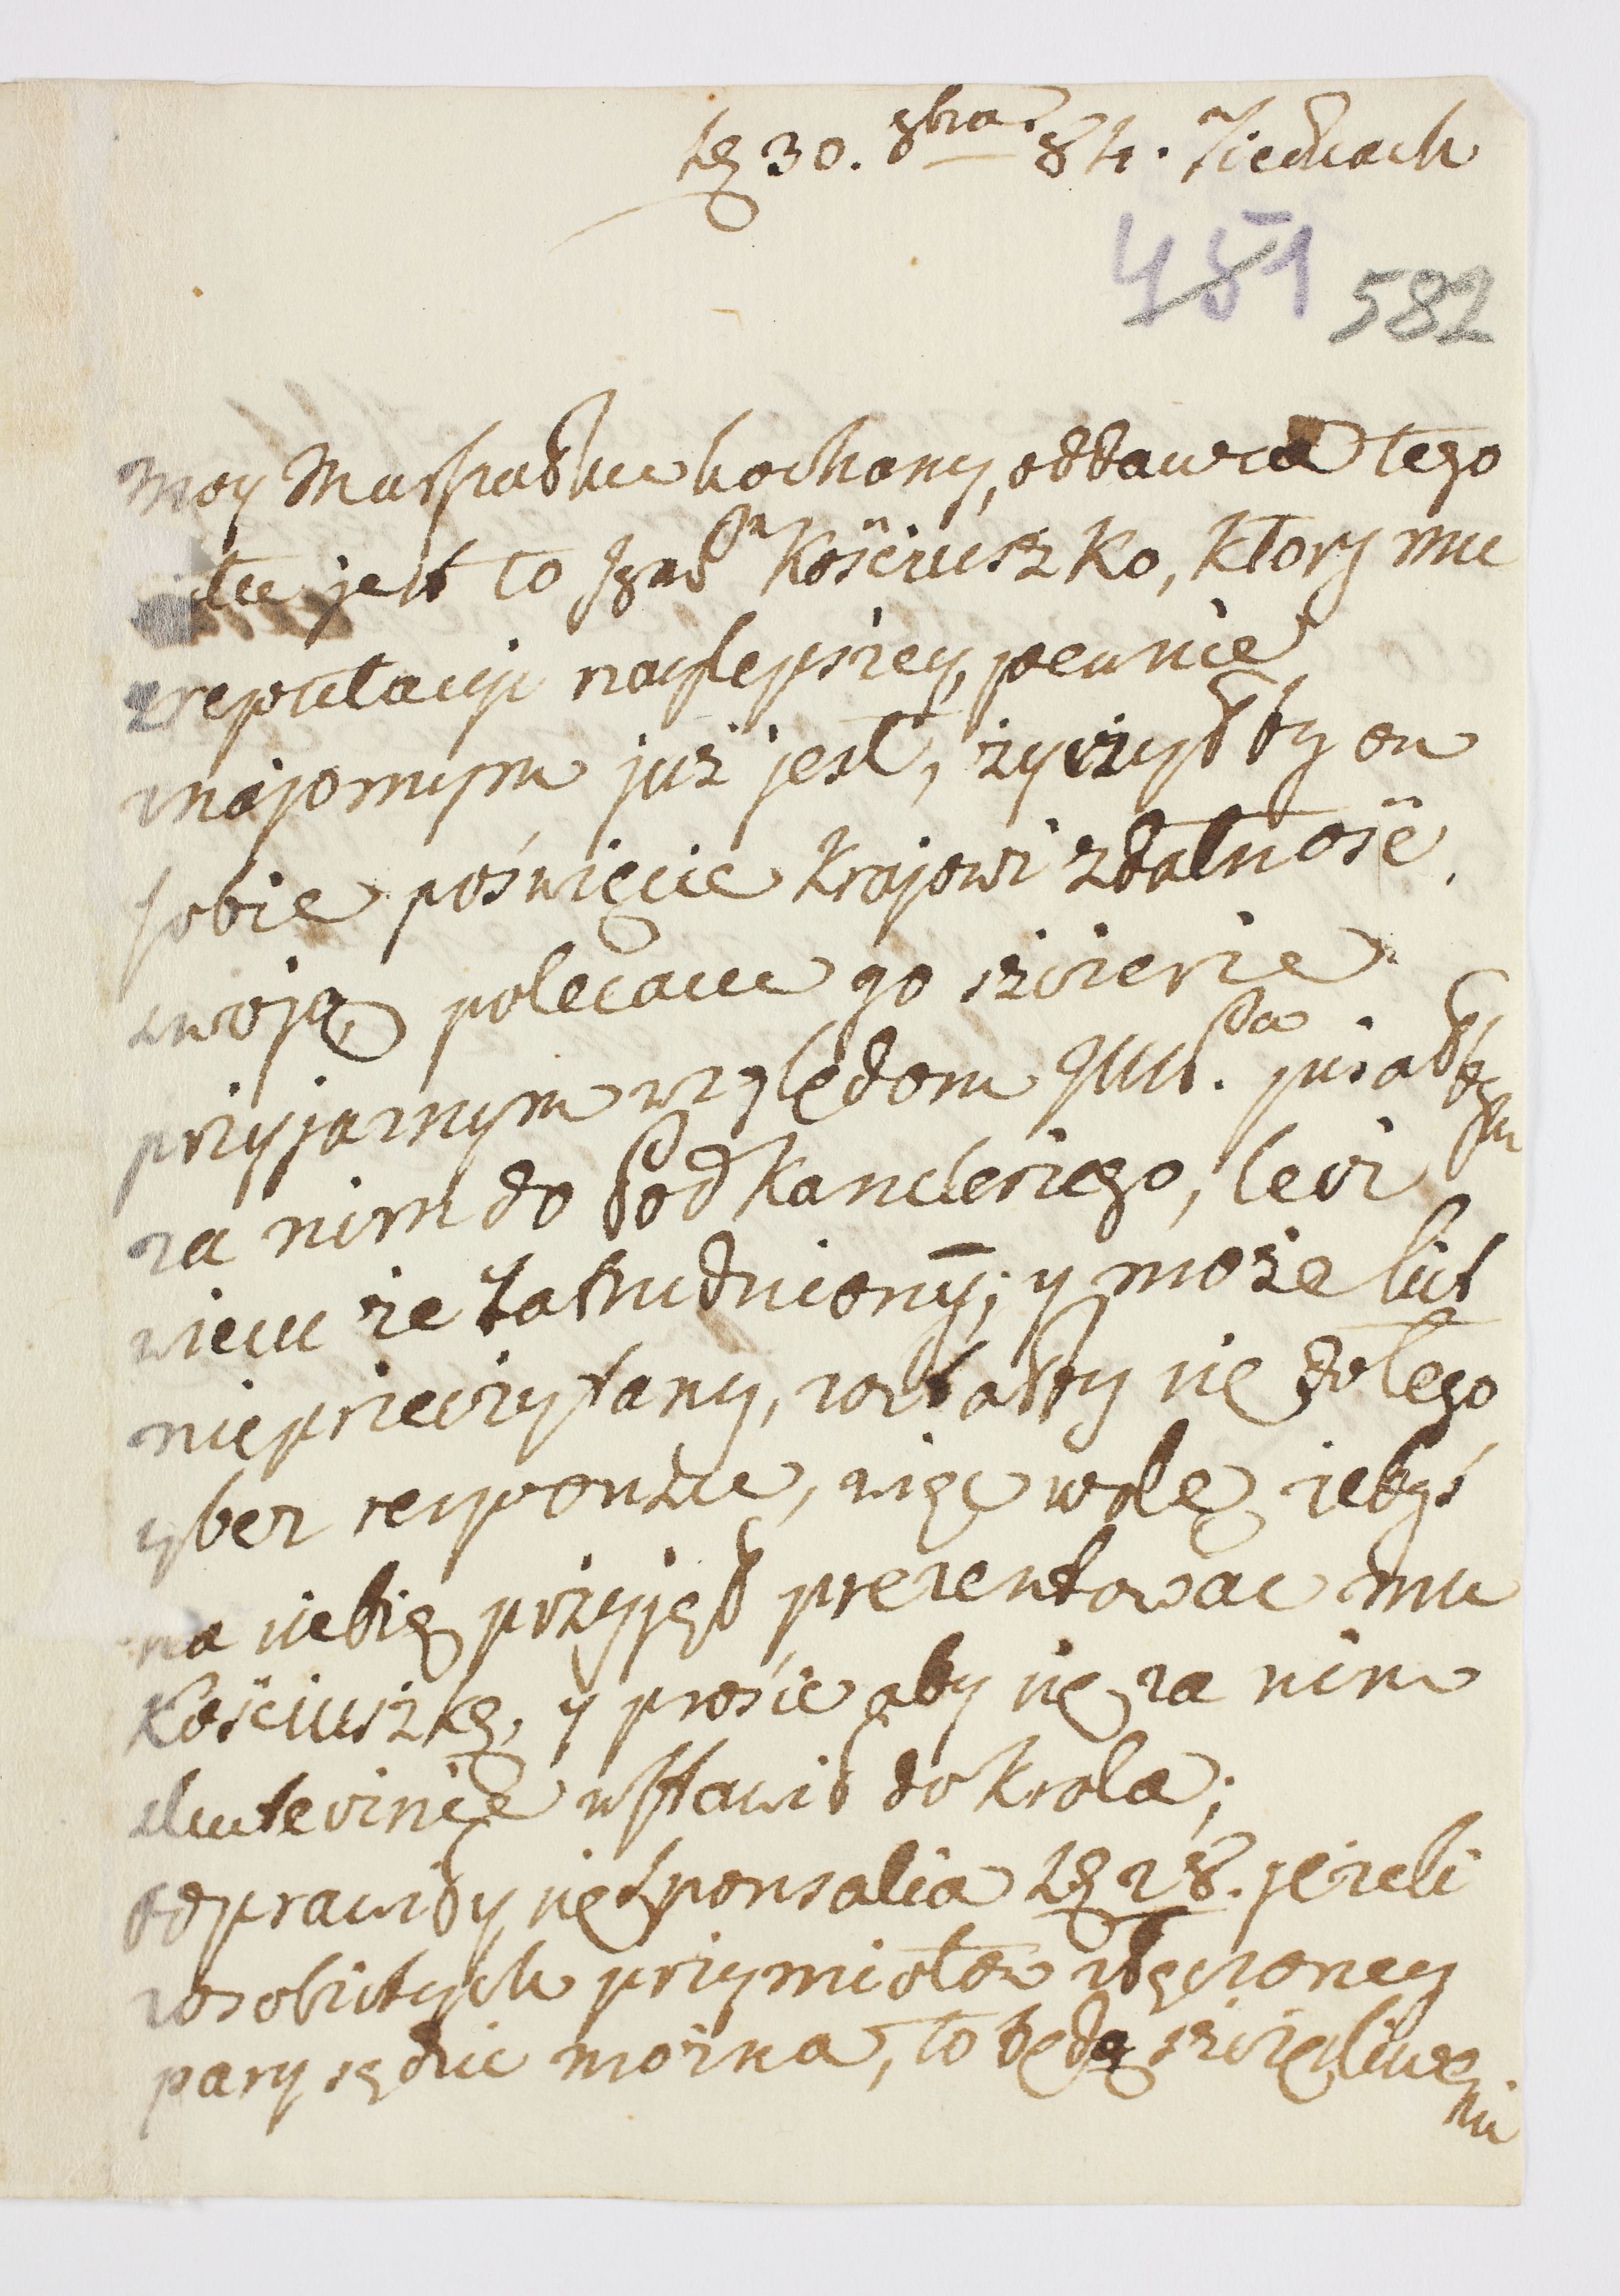 30. 9bra 84. Siedlcach
451 582
Moy Marszałku kochany, oddawca tego
listu jest to Jgmć Pn Kościuszko, ktory mu
z reputacyi naylepszey, pewnie
znajomym już jest, życzyłby on
sobie poświęcić krajowi zdatność
swoją, polecam go szczerze
przyjaznym względom JWWPa. pisałbym
za nim do Podkanclerzego, lecz
wiem że zatrudniony; y może list
nieprzeczytany, zostałby się do tego
y bez responsu, więc wolę żebyś
na siebie przyjął prezentować mu
Kościuszkę, y prosić aby się za nim
skutecznie wstawił do Krola;
odprawiły się Sponsalia 28. jeżeli
z osobistych przymiotow złączoney
pary sądzić można, to będą szczęśliwemi